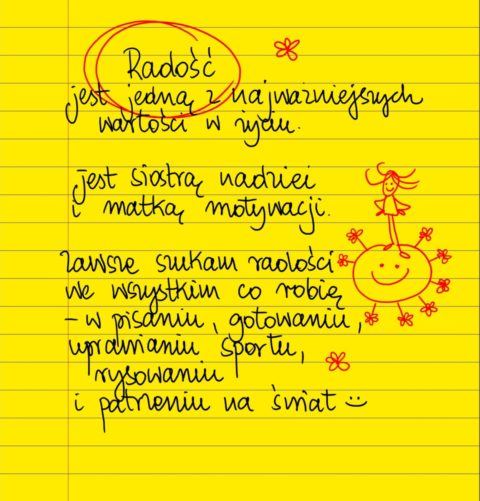 Radość
jest jedną z najważniejszych
wartości w życiu.
Jest siostrą nadziei
i matką motywacji.
Zawsze szukam radości
we wszystkim co robię
- w pisaniu, gotowaniu,
uprawianiu sportu,
rysowaniu
i patrzeniu na świat :)